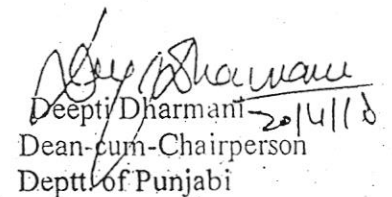 Deepti Dharmani
20/4/18
Dean-cum-Chairperson
Deptt. of Punjabi